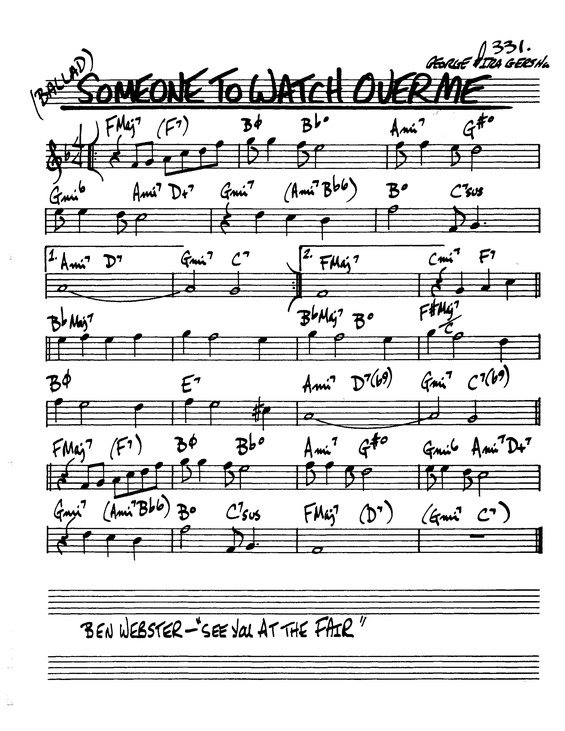 331.
GEORGE & IRA GERSHWIN
(BALLAD)
SOMEONE TO WATCH OVER ME
FMaj7 (F7) Bø Bb° Ami7 G#°
Gmi6 Ami7 D+7 Gmi7 (Ami7 Bb6) B° C7sus
1. Ami7 D7 Gmi7 C7 2. FMaj7 Cmi7 F7
BbMaj7 BbMaj7 B° F#Maj7/C
Bø E7 Ami7 D7(b9) Gmi7 C7(b9)
FMaj7 (F7) Bø Bb° Ami7 G#° Gmi6 Ami7 D+7
Gmi7 (Ami7 Bb6) B° C7sus FMaj7 (D7) (Gmi7 C7)
BEN WEBSTER – "SEE YOU AT THE FAIR"